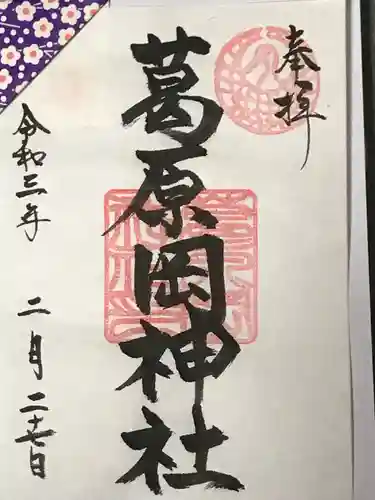 奉拝
葛原岡神社
令和三年 二月二十七日